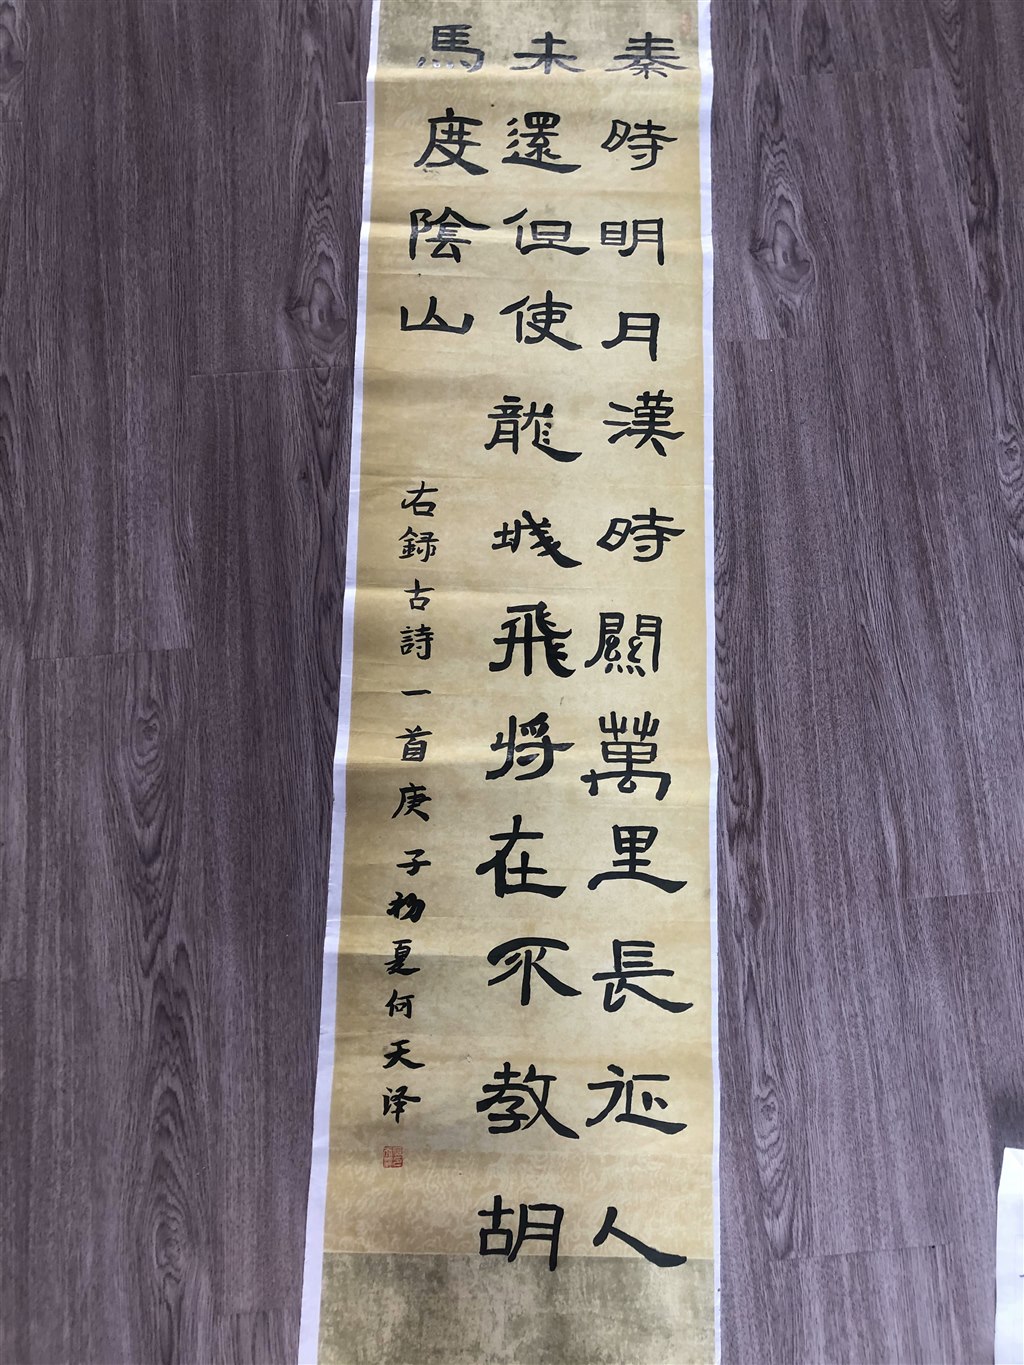 秦時明月漢時關萬里長征人
未還但使龍城飛將在不教胡
馬度陰山
右録古詩一首庚子初夏何天泽